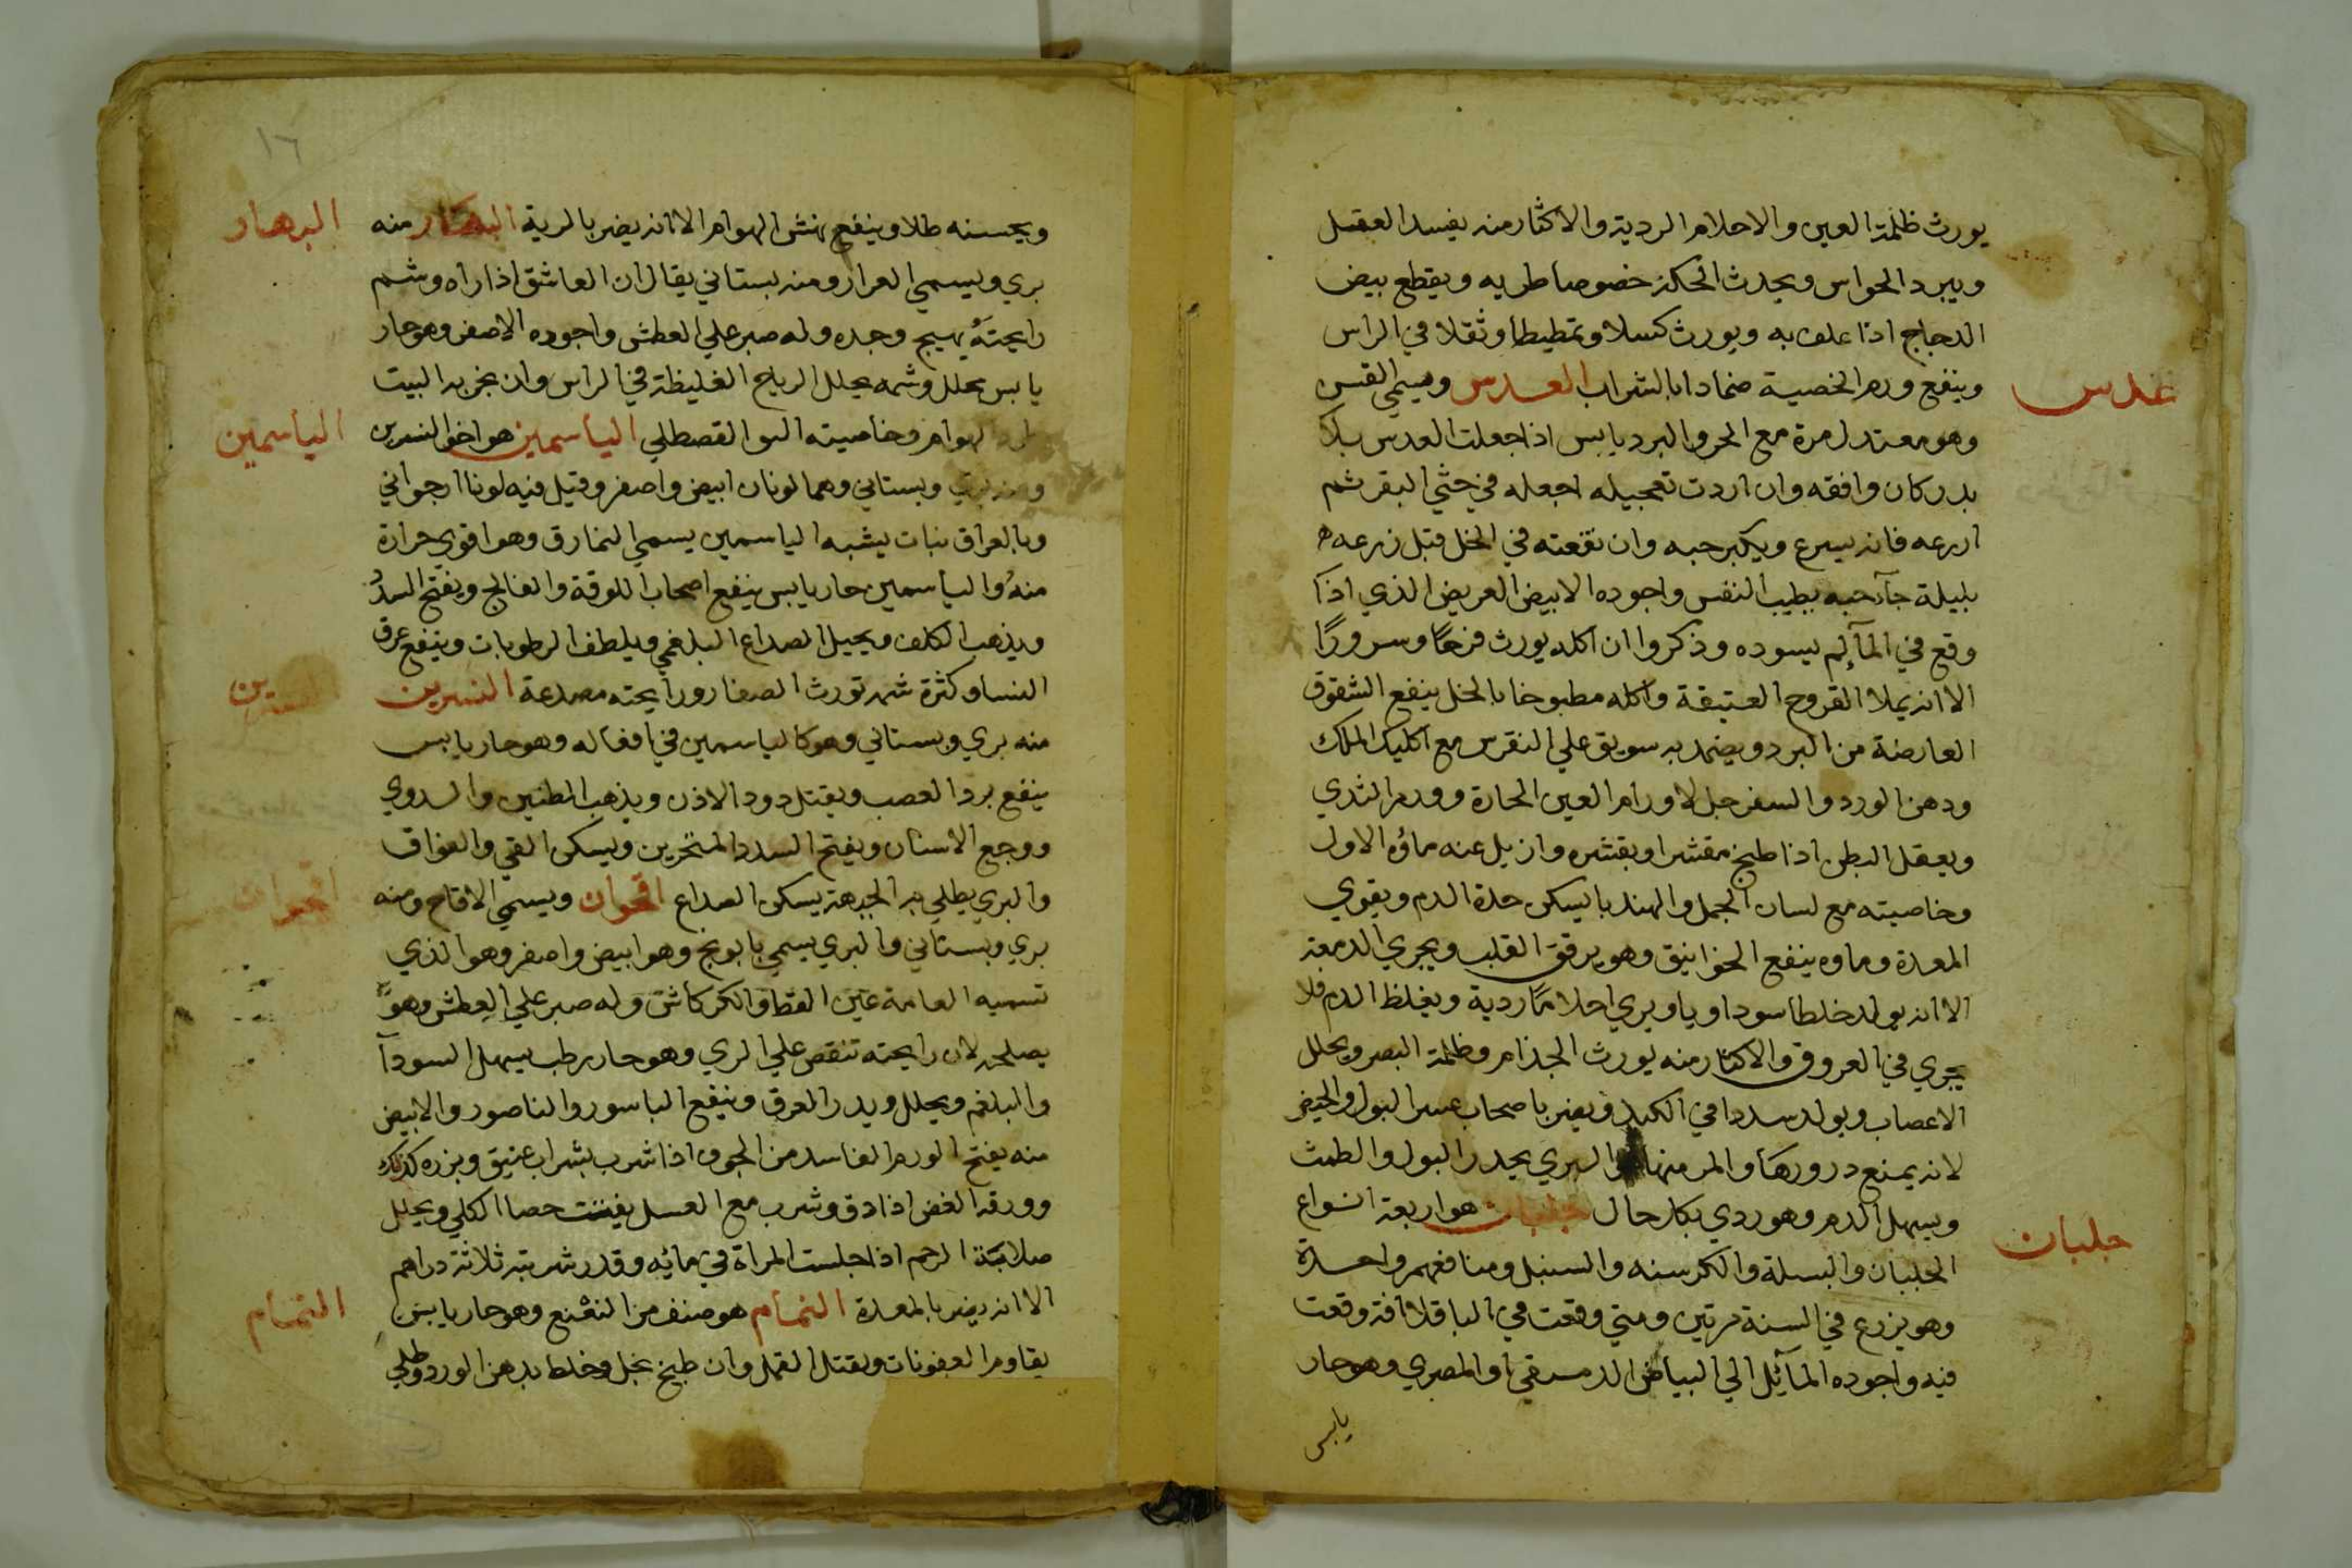 يورث ظلمة العين والاحلام الردية والاكثار منه يفسد العقل
ويبرد الحواس ويحدث الحكة خصوصا طريه ويقطع بيض
الدجاج اذا علف به ويورث كسلا وتمطيطا وثقلا في الراس
عدس
وينفع ورم الخصية ضمادا بالشراب العدس ويسمي القس
وهو معتدل مرة مع الحر والبرد يابس اذا جعلت العدس بلا
بدر كان وافقه وان اردت تعجيله اجعله في خثي البقر ثم
ازرعه فانه يسرع ويكبر حبه وان نقعته في الخل قبل زرعه
بليلة جآ حبه يطيب النفس واجوده الابيض العريض الذي اذا
وقع في المآ لم يسوده وذكروا ان اكله يورث فرحًا وسرورًا
الا انه يملا القروح العتيقة واكله مطبوخا بالخل ينفع الشقوق
العارضة من البرد ويضمد به سويق علي النقرس مع اكليل الملك
ودهن الورد والسفرجل لاورام العين الحارة وورم الثدي
ويعقل البطن اذا طبخ مقشرا وبقشره وازيل عنه ماؤه الاول
وخاصيته مع لسان الحمل والهندبا يسكن حدة الدم ويقوي
المعدة وماوه ينفع الخوانيق وهو يرقق القلب ويجري الدمعة
الا انه يولد خلطا سوداويا ويري احلامًا ردية ويغلظ الدم فلا
يجري في العروق والاكثار منه يورث الجذام وظلمة البصر ويحلل
الاعصاب ويولد سددا في الكبد ويضر باصحاب عسر البول والحيض
لانه يمنع درورها والمر منها والبري يحدر البول والطمث
ويسهل الدم وهو ردي بكل حال جلبان هو اربعة انواع
جلبان
الجلبان والبسلة والكرسنه والسنبل ومنافعهم واحدة
وهو يزرع في السنة مرتين ومتي وقعت في الباقلا افة وقعت
فيه واجوده المآئل الي البياض الدمسقي او المصري وهو حار
يابس
١٦
البهار
ويحسنه طلا وينفع نهش الهوام الا انه يضر بالرية البهار منه
بري ويسمي العرار ومنه بستاني يقال ان العاشق اذا راه وشم
رايحته يهيج وجده وله صبر علي العطش واجوده الاصفر وهو حار
يابس محلل وشمه يحلل الرياح الغليظة في الراس وان بخر به البيت
الياسمين
طرد الهوام وخاصيته القصطلي الياسمين هو اخو النسرين
ومنه بري وبستاني وهما لونان ابيض واصفر وقيل فيه لونا ارجواني
وبالعراق نبات يشبه الياسمين يسمي النمارق وهو اقوي حرارة
منه والياسمين حار يابس ينفع اصحاب اللوقة والفالج ويفتح السدد
ويذهب الكلف ويحيل الصداع البلغمي ويلطف الرطوبات وينفع عرق
النسرين
النسا وكثرة شمه تورث الصفار ورايحته مصدعة النسرين
منه بري وبستاني وهو كالياسمين في افعاله وهو حار يابس
ينفع برد العصب ويقتل دود الاذن ويذهب الطنين والدوي
ووجع الاسنان ويفتح السدد المنخرين ويسكن القي والفواق
اقحوان
والبري يطلي به الجبهة يسكن الصداع اقحوان ويسمي الاقاح ومنه
بري وبستاني والبري يسمي بابونج وهو ابيض واصفر وهو الذي
تسميه العامة عين القط والكركاش وله صبر علي العطش وهو
يصلح لان رايحته تنقص علي الري وهو حار رطب يسهل السودآ
والبلغم ويحلل ويدر العرق وينفع الباسور والناصور والابيض
منه يفتح الورم الفاسد من الجوف اذا شرب بشراب عتيق وبزره كذلك
وورقه الغض اذا دق وشرب مع العسل يفتت حصا الكلي ويحلل
صلابة الرحم اذا جلست المراة في مائه وقدر شربته ثلاثة دراهم
النمام
الا انه يضر بالمعدة النمام هو صنف من النعنع وهو حار يابس
يقاوم العفونات ويقتل القمل وان طبخ بخل وخلط بدهن الورد وطلي